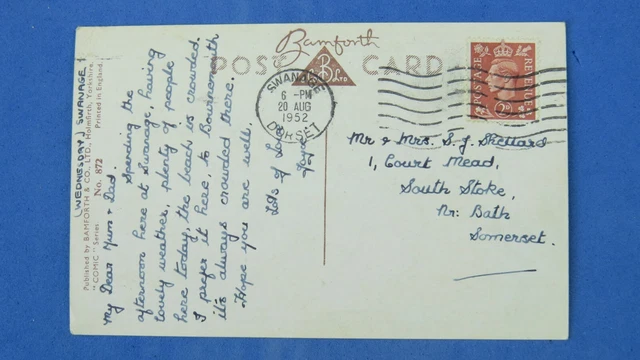 Bamforth
POST CARD
B
& Co
LTD
(WEDNESDAY) SWANAGE
Published by BAMFORTH & CO., LTD., Holmfirth, Yorkshire.
"COMIC" Series No. 872 Printed in England.
My Dear Mum & Dad
Spending the
afternoon here at Swanage, having
lovely weather, plenty of people
here today, the beach is crowded.
I prefer it here, to Bournemouth
it's always crowded there.
Hope you are well,
Lots of Love
SWANAGE
6 - PM
20 AUG
1952
DORSET
POSTAGE
REVENUE
2D
Mr & Mrs. S. J.
1, Court Mead,
South Stoke,
Nr: Bath
Somerset.